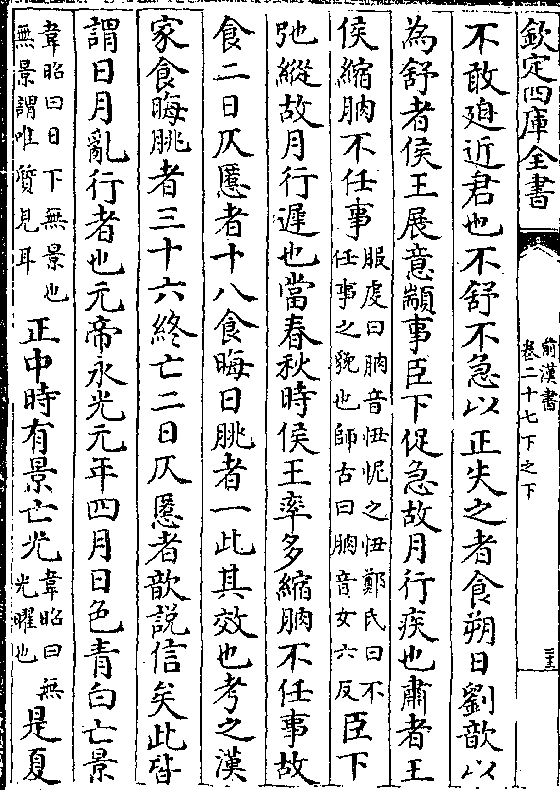 欽定四庫全書
前漢書
卷二十七下之下
三五
不敢廹近君也不舒不急以正失之者食朔日劉歆以
為舒者侯王展意顓事臣下促急故月行疾也肅者王
侯縮朒不任事服䖍曰朒音忸怩之忸鄭氏曰不任事之貌也師古曰朒音女六反臣下
弛縱故月行遲也當春秋時侯王率多縮朒不任事故
食二日仄慝者十八食晦日朓者一此其效也考之漢
家食晦朓者三十六終亡二日仄慝者歆說信矣此皆
謂日月亂行者也元帝永光元年四月日色青白亡景
韋昭曰日下無景也無景謂唯質見耳正中時有景亡光韋昭曰無光曜也是夏